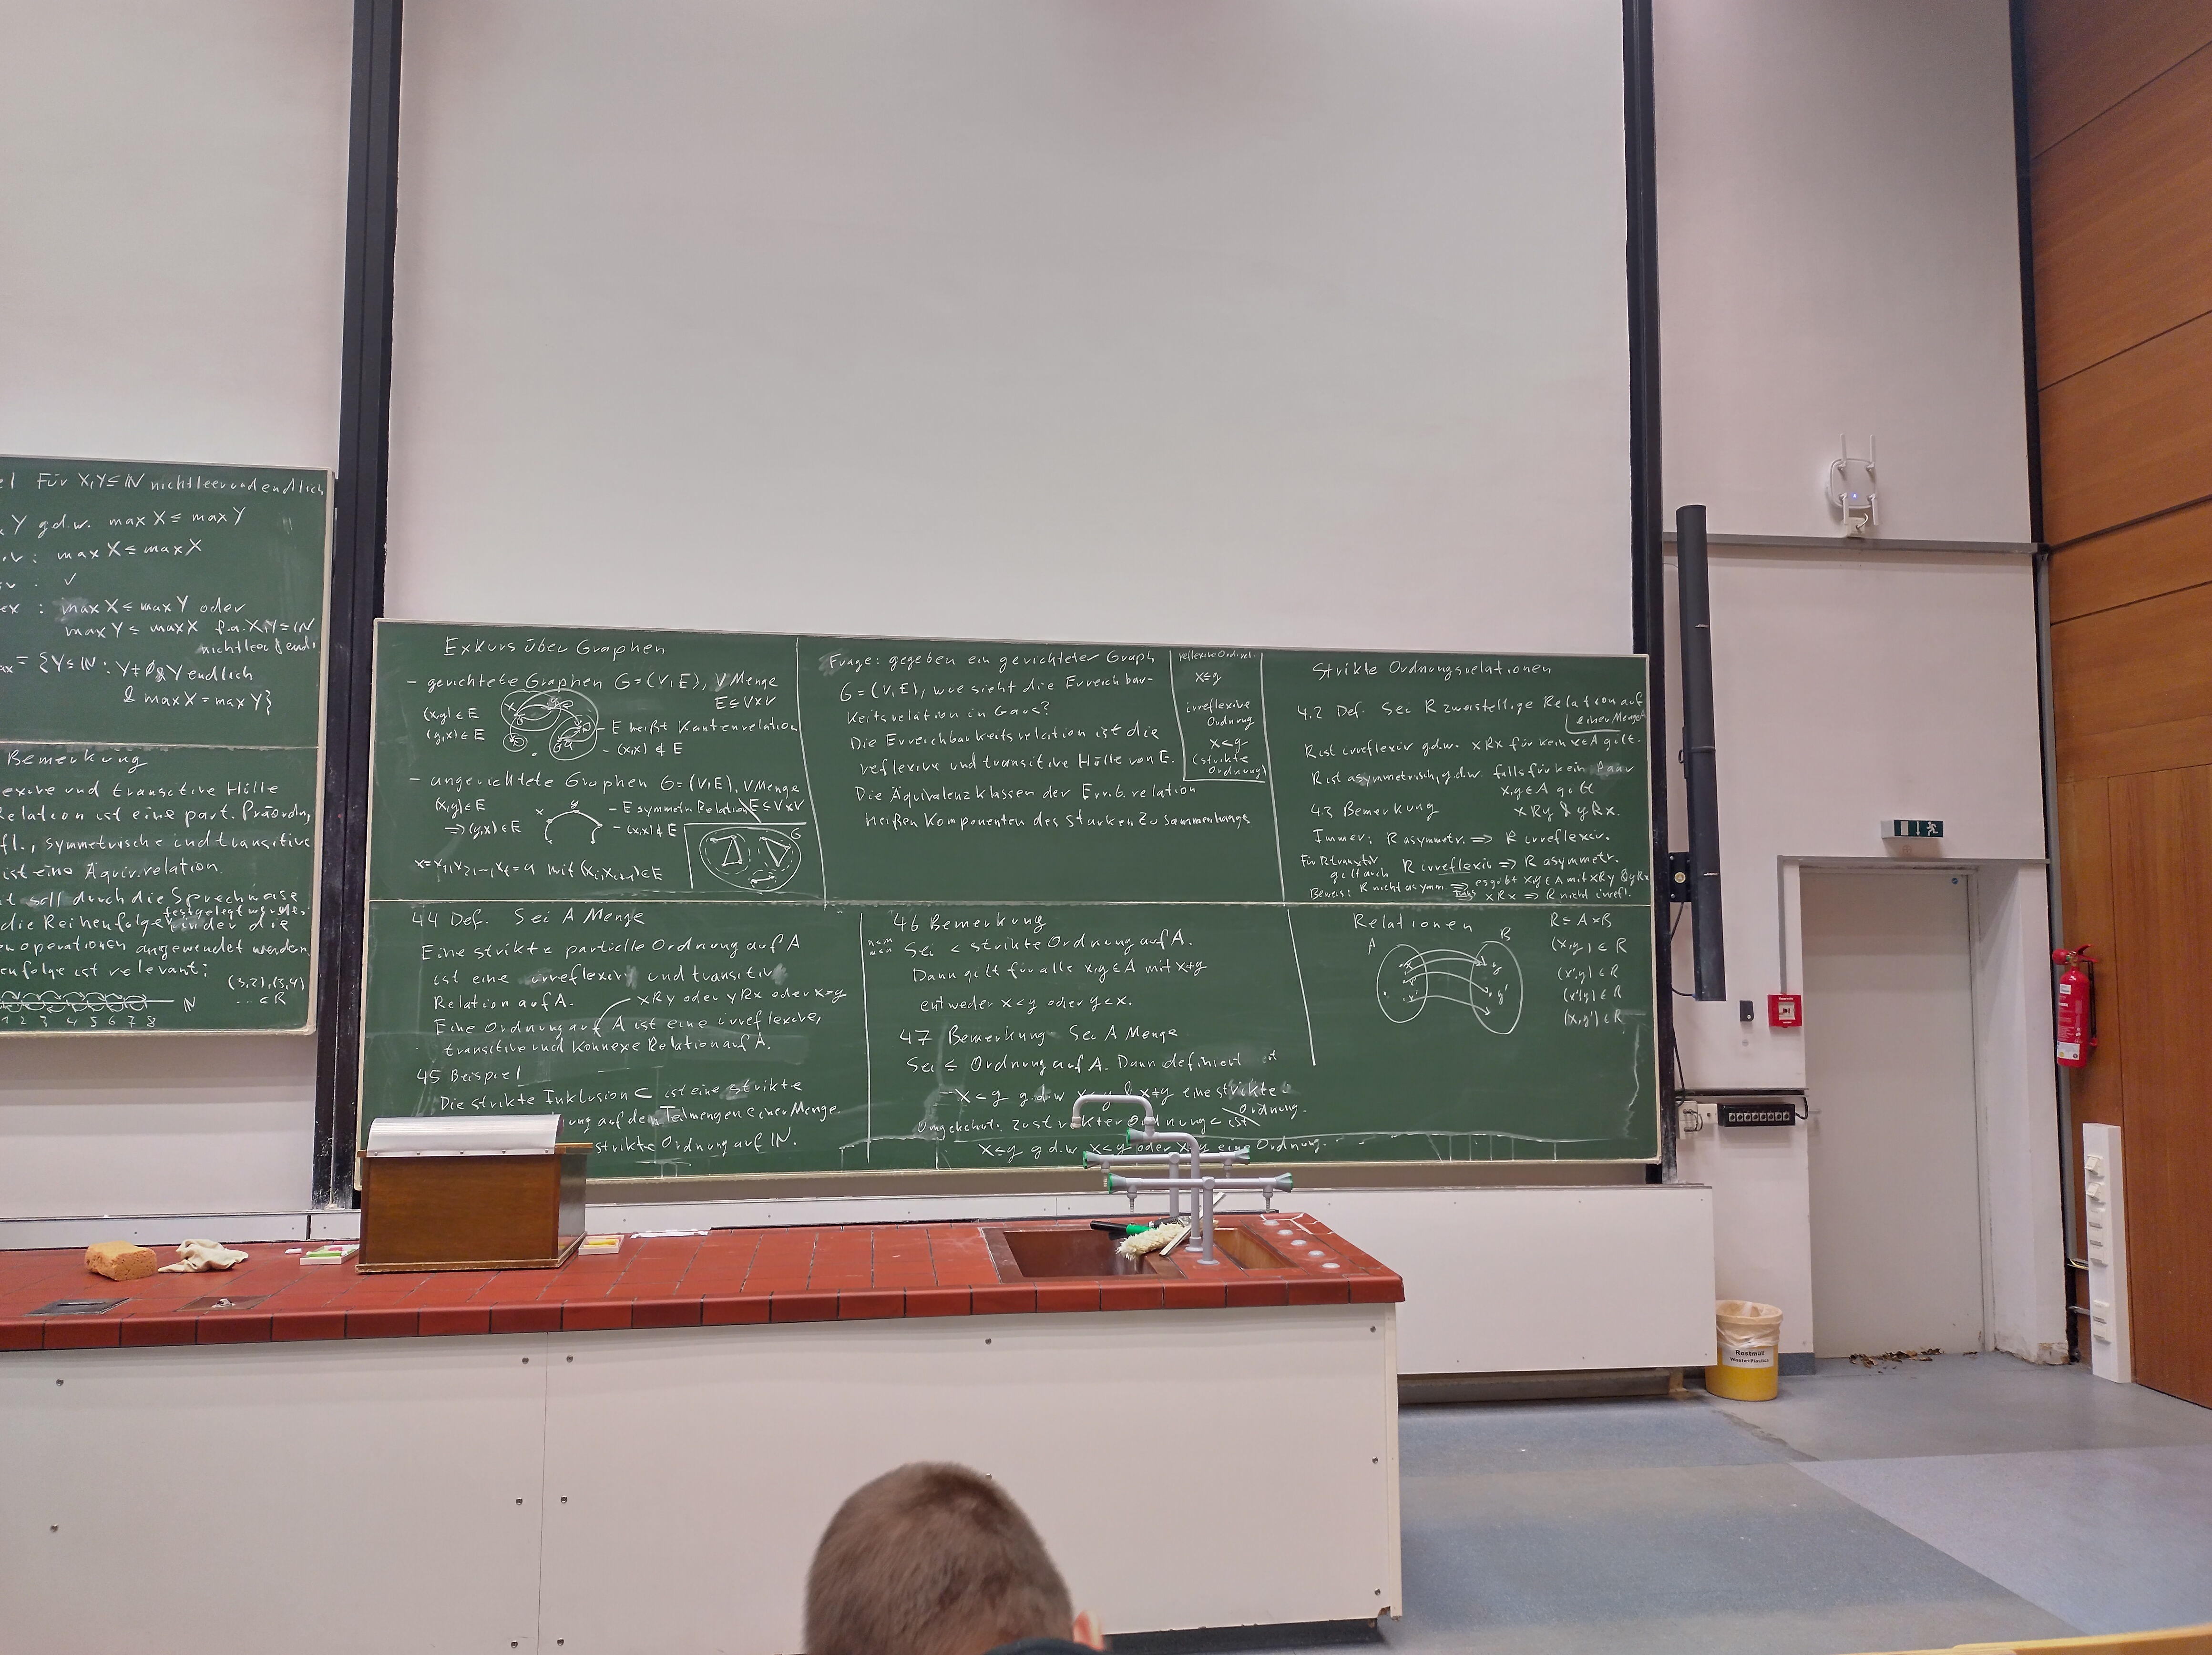 Für X,Y⊆ℕ nichtleer und endlich
Y gdw. max X ≤ max Y
max X ≤ max X
✓
max X ≤ max Y oder
max Y ≤ max X f.a. X,Y⊆ℕ
nichtleer & endl.
= {Y⊆ℕ : Y≠∅ & Y endlich
& max X = max Y}
Bemerkung
exive und transitive Hülle
Relation ist eine part. Präordn.
fl., symmetrische und transitive
ist eine Äquiv.relation.
t soll durch die Sprechweise
festgelegt werden,
die Reihenfolge in der die
operationen angewendet werden.
enfolge ist relevant:
(3,2),(3,4)
.. ∈ R
1 2 3 4 5 6 7 8 ℕ
Exkurs über Graphen
- gerichtete Graphen G=(V,E), V Menge
E⊆V×V
(x,y)∈E
(y,x)∈E
- E heißt Kantenrelation
- (x,x)∉E
- ungerichtete Graphen G=(V,E), V Menge
(x,y)∈E
⇒(y,x)∈E
x y
- E symmetr. Relation E⊆V×V
- (x,x)∉E
G
mit (xᵢ,xᵢ₊₁)∈E
Frage: gegeben ein gerichteter Graph
G=(V,E), wie sieht die Erreichbar-
keitsrelation in G aus?
Die Erreichbarkeitsrelation ist die
reflexive und transitive Hülle von E.
Die Äquivalenzklassen der Err.b.relation
heißen Komponenten des starken Zusammenhangs
reflexive Ord.rel.
x≤y
irreflexive
Ordnung
x<y
(strikte
Ordnung)
Strikte Ordnungsrelationen
4.2 Def. Sei R zweistellige Relation auf
einer Menge A
R ist irreflexiv gdw. xRx für kein x∈A gilt.
R ist asymmetrisch, gdw. falls für kein Paar
x,y∈A gilt
4.3 Bemerkung xRy & yRx.
Immer: R asymmetr. ⇒ R irreflexiv.
Für R transitiv
gilt auch R irreflexiv ⇒ R asymmetr.
Beweis: R nicht asymm ⇒ es gibt x,y∈A mit xRy & yRx
⇒ xRx ⇒ R nicht irrefl.
4.4 Def. Sei A Menge
Eine strikte partielle Ordnung auf A
ist eine irreflexive und transitive
Relation auf A.
xRy oder yRx oder x=y
Eine Ordnung auf A ist eine irreflexive,
transitive und konnexe Relation auf A.
4.5 Beispiel
Die strikte Inklusion ⊂ ist eine strikte
ung auf den Teilmengen einer Menge.
strikte Ordnung auf ℕ.
4.6 Bemerkung
Sei < strikte Ordnung auf A.
Dann gilt für alle x,y∈A mit x≠y
entweder x<y oder y<x.
4.7 Bemerkung Sei A Menge
Sei ≤ Ordnung auf A. Dann definiert
x<y gdw x≤y & x≠y eine strikte
Ordnung.
Umgekehrt: zu strikter Ordnung < ist
x≤y gdw x<y oder x=y eine Ordnung.
Relationen
A B
R⊆A×B
(x,y)∈R
(x',y)∈R
(x,y')∈R
Restmüll
Waste+Plastics